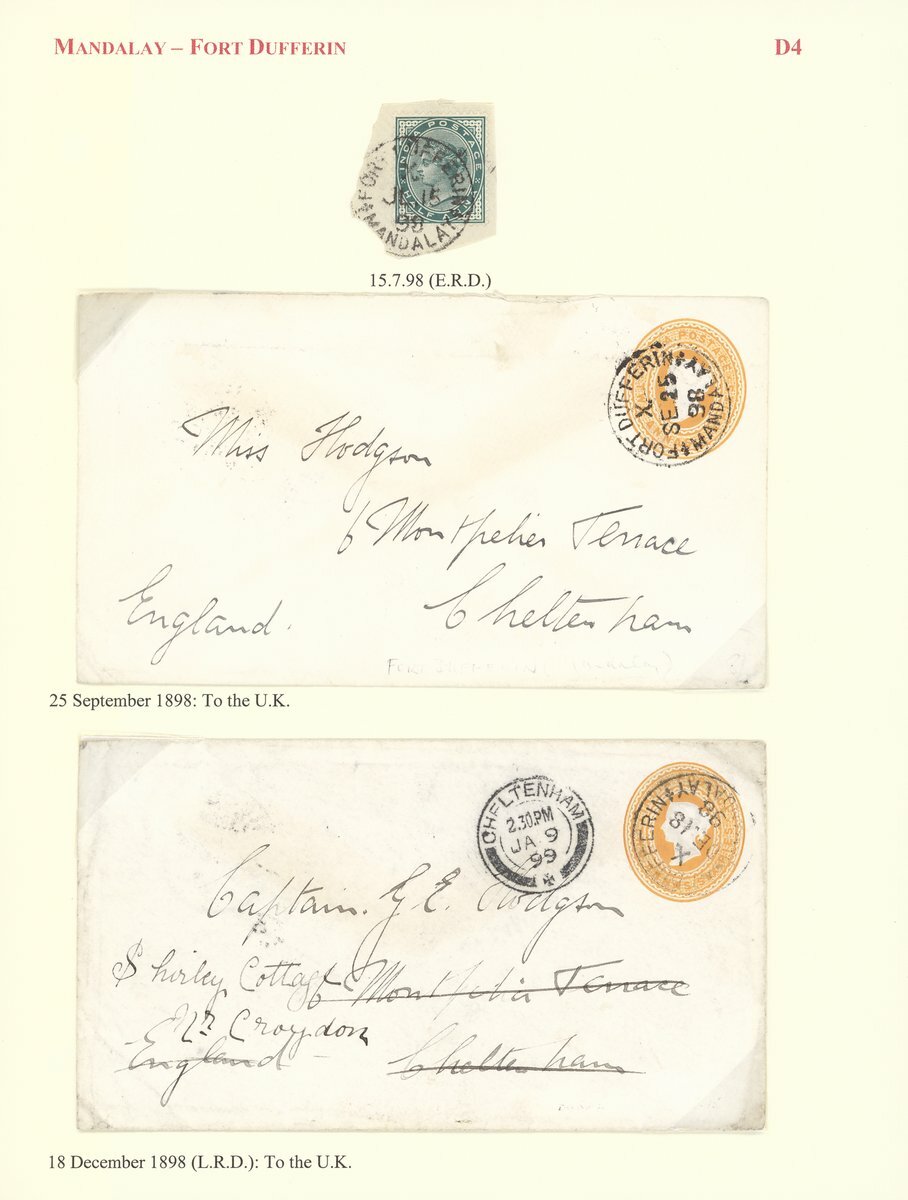 MANDALAY – FORT DUFFERIN
D4
INDIA POSTAGE
HALF ANNA
FORT DUFFERIN
MANDALAY
JL 15
98
15.7.98 (E.R.D.)
POSTAGE
FORT DUFFERIN
MANDALAY
X
SE 25
98
Miss Hodgson
6 Montpelier Terrace
Cheltenham
England.
25 September 1898: To the U.K.
CHELTENHAM
2.30PM
JA 9
99
FFERIN
DALAY
X
18
98
Captain. G. E. Hodgson
6 Montpelier Terrace
Shirley Cottage
Nr Croydon
England
Cheltenham
18 December 1898 (L.R.D.): To the U.K.